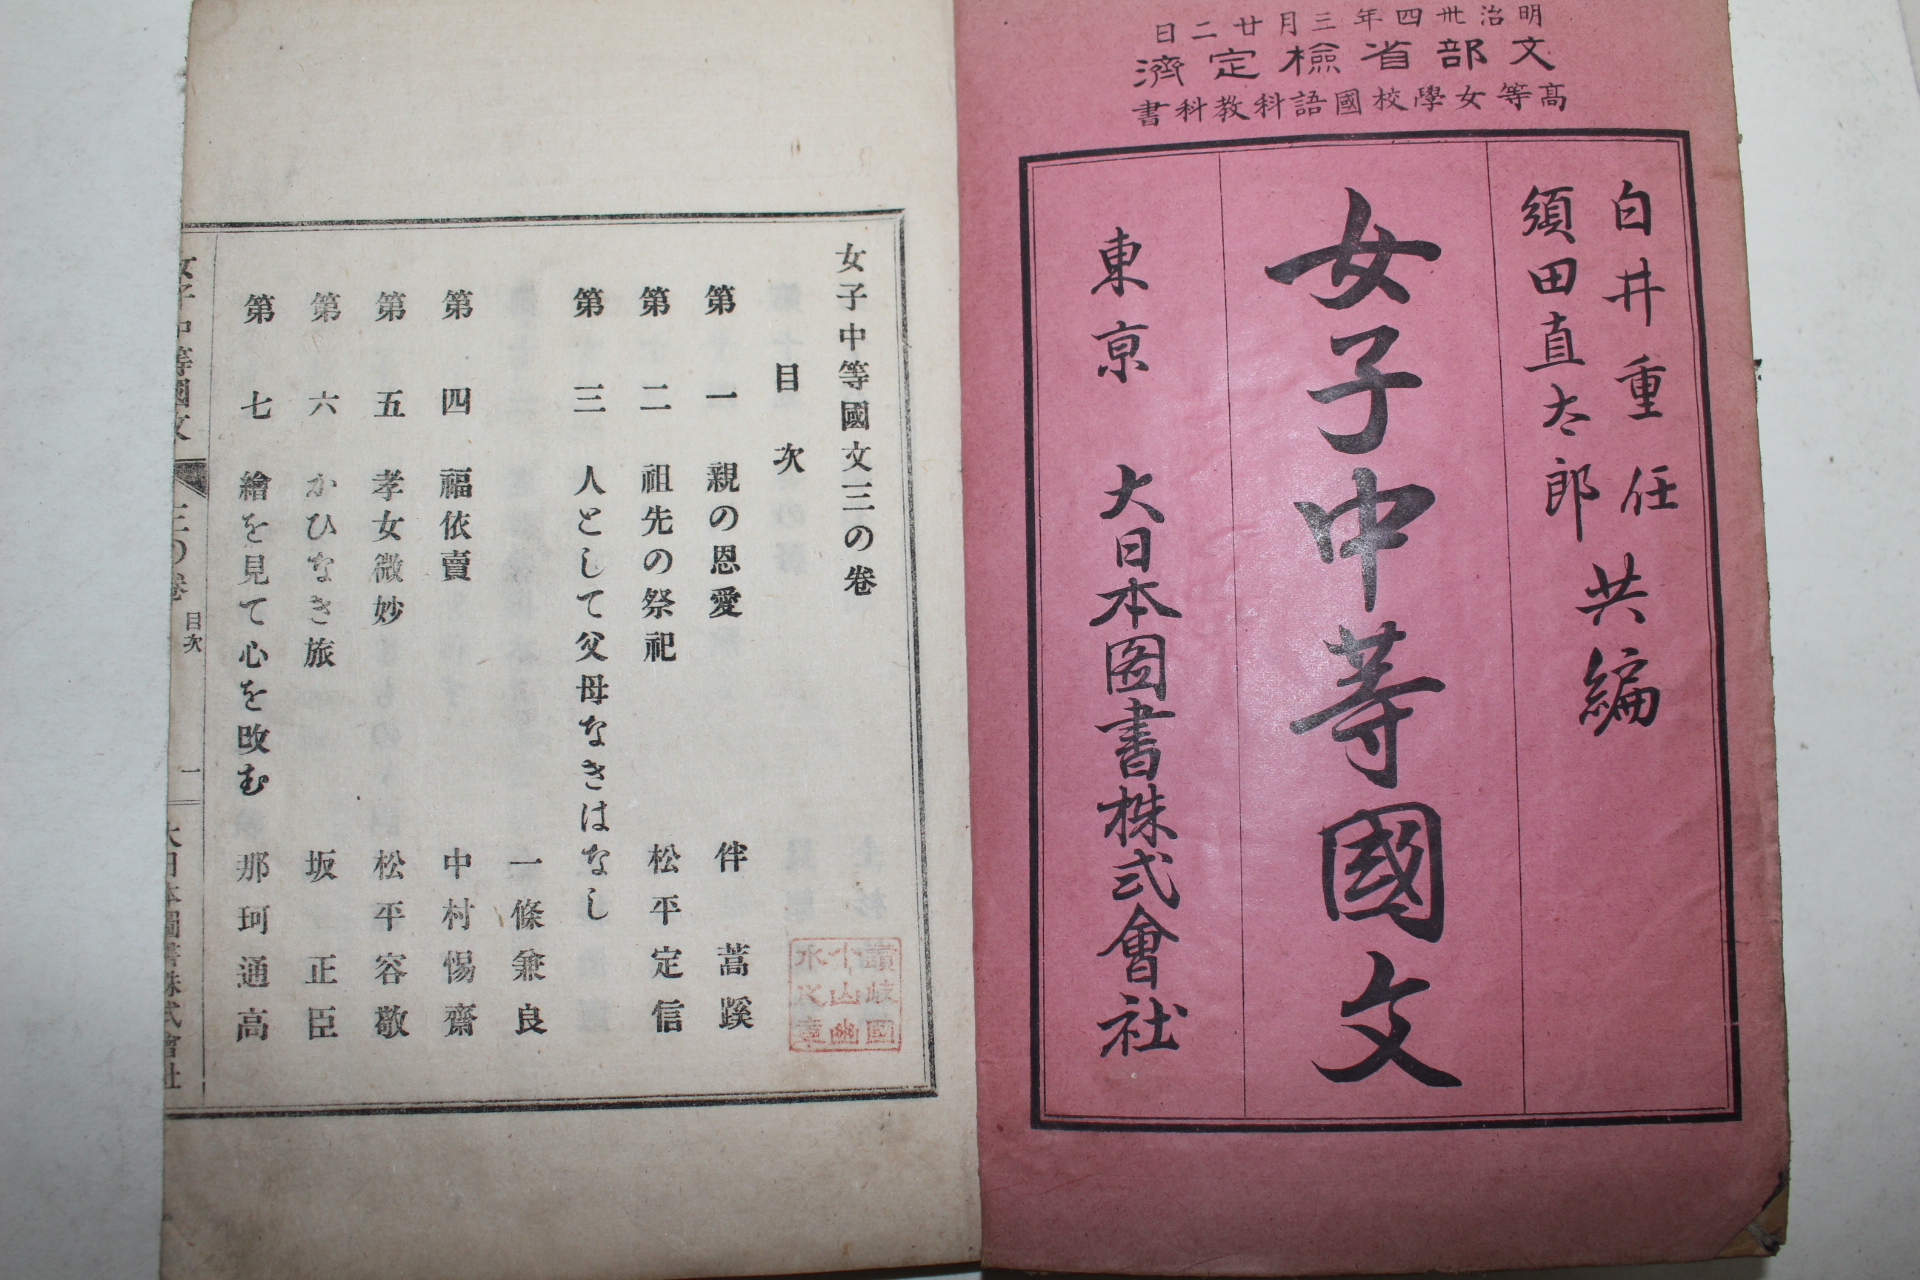 明治卅四年三月廿二日
文部省檢定濟
高等女學校國語科教科書
白井重任
須田直太郎
共編
女子中等國文
東京 大日本圖書株式會社
女子中等國文三の卷
目次
第一 親の恩愛 伴蒿蹊
第二 祖先の祭祀 松平定信
第三 人として父母なきはなし
一條兼良
第四 福依賣 中村惕齋
第五 孝女微妙 松平容敬
第六 かひなき旅 坂正臣
第七 繪を見て心を改む 那珂通高
女子中等國文 三の卷 目次 一 大日本圖書株式會社